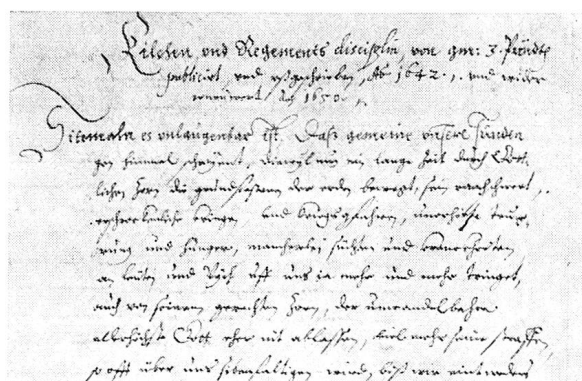 Kilchen und Regements disciplin, von gmr: 3. Pündte
publicirt, und ußgeschriben, Aō 1642. und wider
ernewert, Aō 1650.
Sitemaln es unlaugenbar ist, Daß gemeine unsere sünden
gen himmel schreyent, nun ein lange zeit durch Gött-
lichen Zorn die grundfesten der erden bewegt, sein rachschwert,
kriegen und kriegsgfahren, unerhörte teuw-
rung und hunger, mancherlei süchten und kranckheiten,
an leüten und Vych uff uns ie mehr und mehr tringet,
auch von seinem gerechten Zorn, der unwandelbahre
allerhöchste Gott eher nit ablassen, viel mehr seine straffen,
so offt über uns sibenfaltigen wird, biß wir eintweders